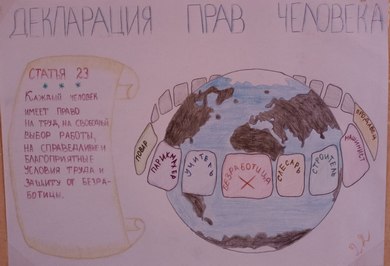 ДЕКЛАРАЦИЯ ПРАВ ЧЕЛОВЕКА
СТАТЬЯ 23
* * *
КАЖДЫЙ ЧЕЛОВЕК
ИМЕЕТ ПРАВО
НА ТРУД, НА СВОБОДНЫЙ
ВЫБОР РАБОТЫ,
НА СПРАВЕДЛИВЫЕ И
БЛАГОПРИЯТНЫЕ
УСЛОВИЯ ТРУДА И
ЗАЩИТУ ОТ БЕЗРА-
БОТИЦЫ.
ПОВАР
ПАРИКМАХЕР
УЧИТЕЛЬ
БЕЗРАБОТИЦА
СЛЕСАРЬ
СТРОИТЕЛЬ